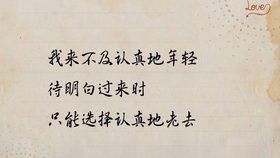 Love
我来不及认真地年轻
待明白过来时
只能选择认真地老去